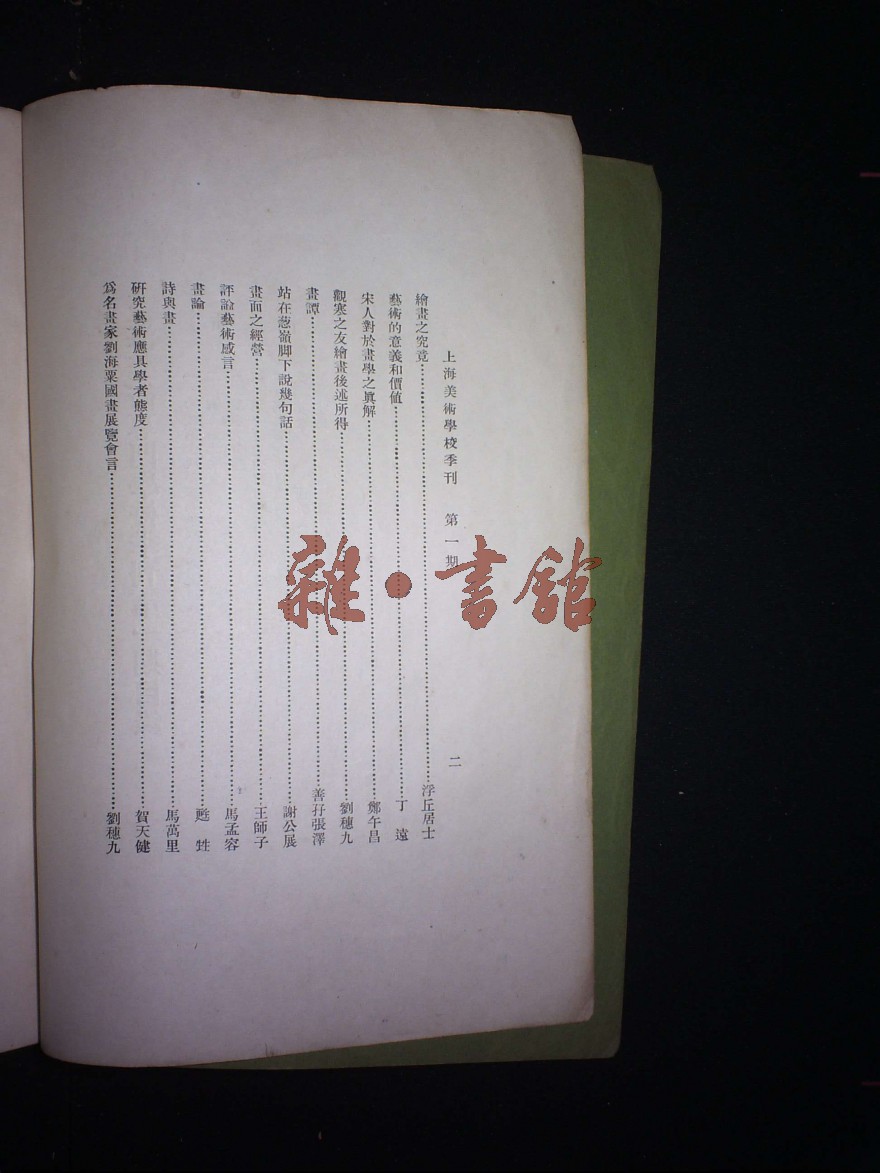 上海美術學校季刊　第一期　二
繪畫之究竟……浮丘居士
藝術的意義和價值……丁　遠
宋人對於畫學之眞解……鄭午昌
觀寒之友繪畫後述所得……劉穗九
畫譚……善孖張澤
站在葱嶺脚下說幾句話……謝公展
畫面之經營……王師子
評論藝術感言……馬孟容
畫論……甦　甡
詩與畫……馬萬里
硏究藝術應具學者態度……賀天健
爲名畫家劉海粟國畫展覽會言……劉穗九
雜·書館